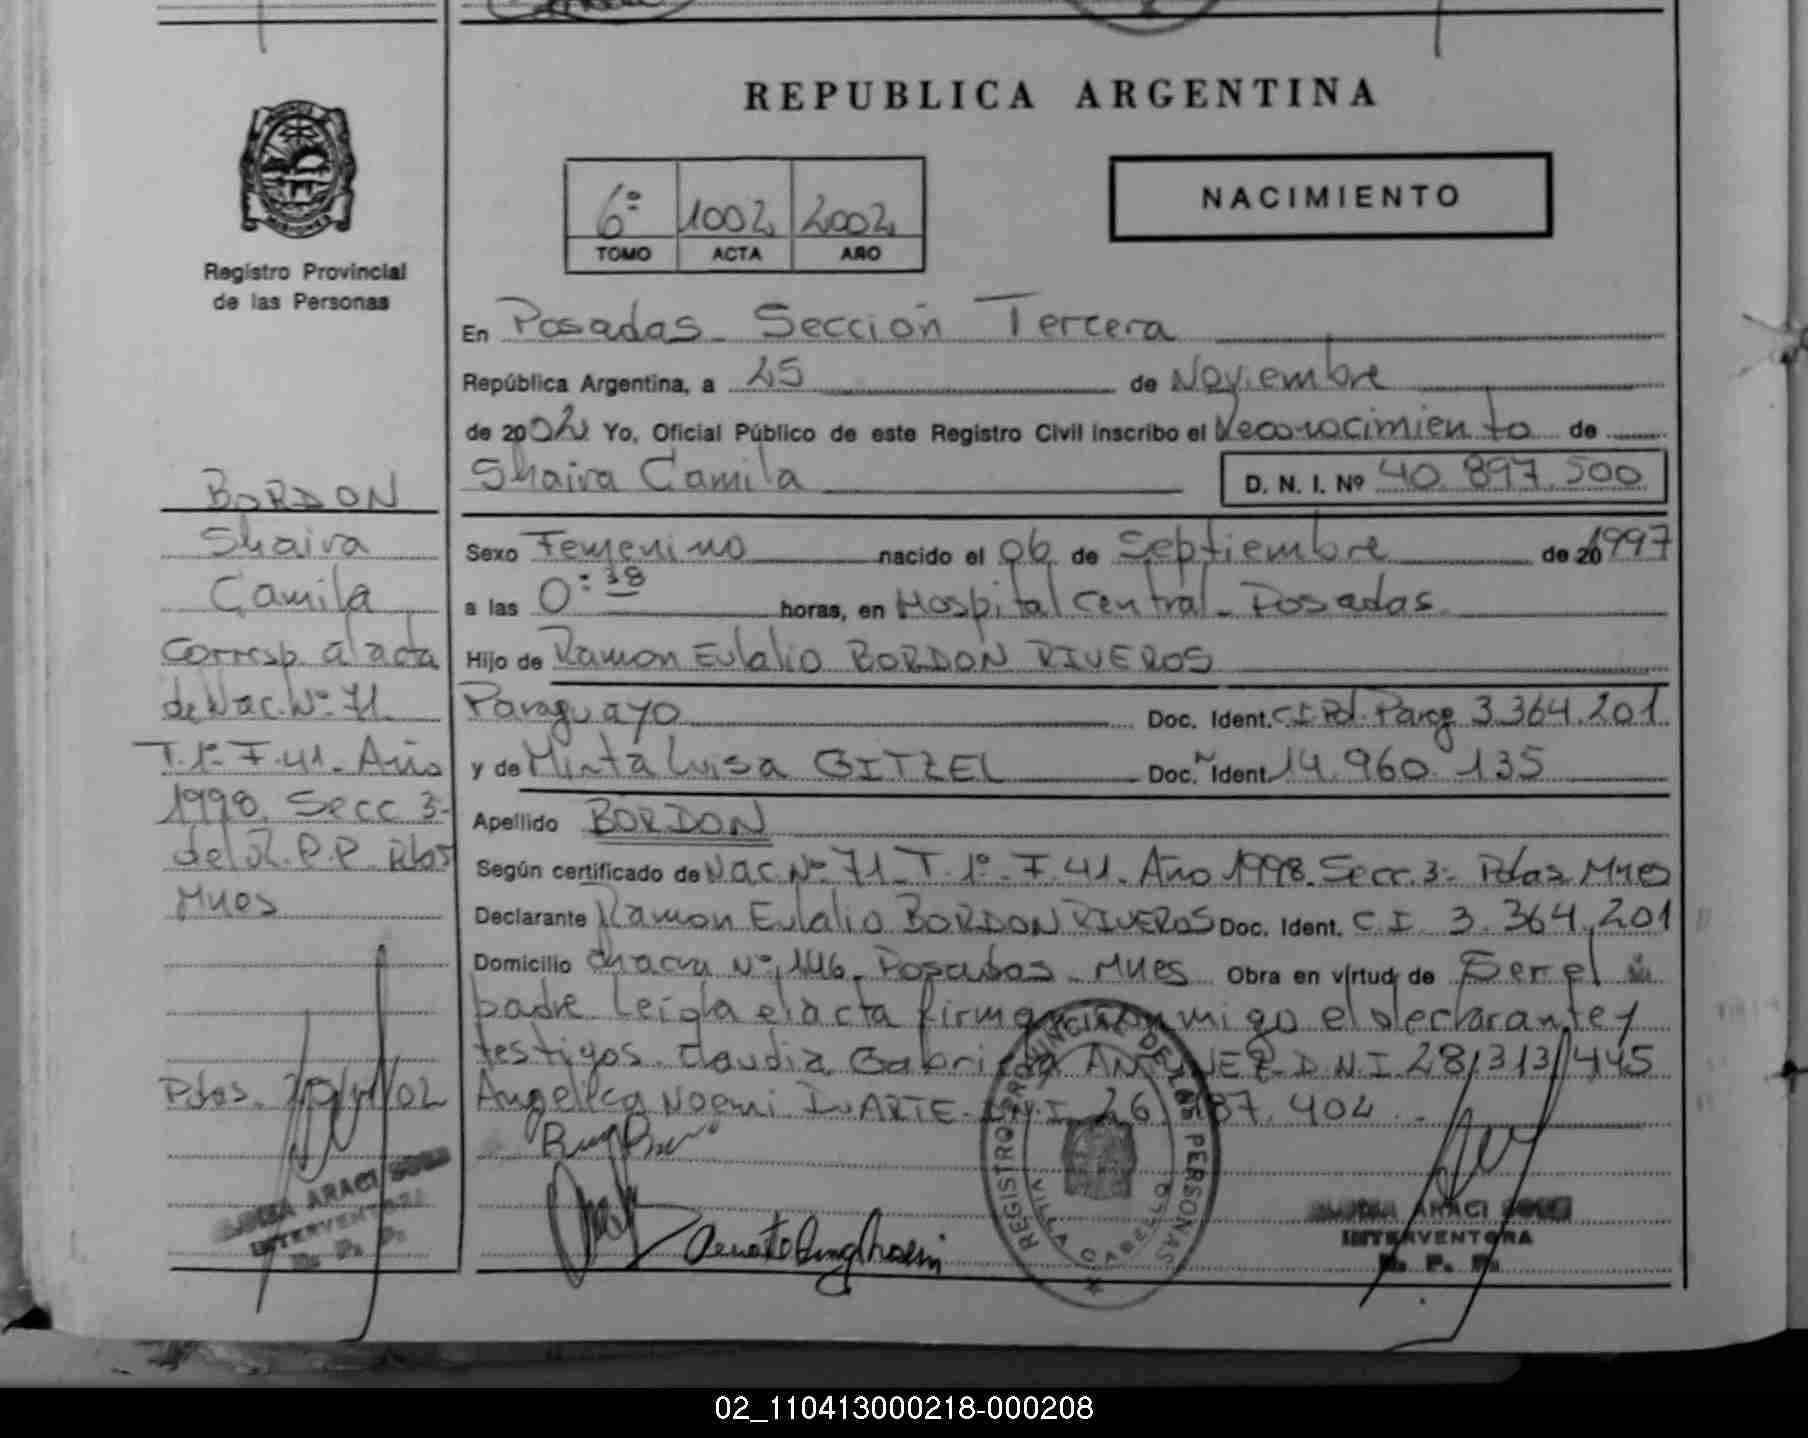 REPUBLICA ARGENTINA
NACIMIENTO
6º 1002 2002
TOMO ACTA AÑO
Registro Provincial
de las Personas
En Posadas - Sección Tercera
República Argentina, a 25 de Noviembre
de 2002 Yo, Oficial Público de este Registro Civil inscribo el Reconocimiento de
Shaira Camila D. N. I. Nº 40.897.500
Sexo Femenino nacido el 06 de Septiembre de 20 1997
a las 0:38 horas, en Hospital Central - Posadas
Hijo de Ramon Eulalio BORDON RIVEROS
Paraguayo Doc. Ident. C.I. Pol. Parag 3.364.201
y de Mirta Luisa GITZEL Doc. Ident. 14.960.135
Apellido BORDON
Según certificado de Nac. Nº 71 - T. 1º - F. 41 - Año 1998. Secc. 3º Pdas Mnes
Declarante Ramon Eulalio BORDON RIVEROS Doc. Ident. C.I. 3.364.201
Domicilio chacra Nº 146 - Posadas - Mnes Obra en virtud de Ser el
padre Leida el acta firma conmigo el declarante y
testigos. Claudia Gabriela D.N.I. 28.313.445
Angelica Noemi DUARTE - D.N.I. 26 187.404
BORDON
Shaira
Camila
Corresp. al acta
de Nac. Nº 71
T. 1º - F. 41 - Año
1998. Secc 3º
del R.P.P. Pdas
Mnes
Pdas. 02
ARACI
INTERVENTORA
R. P. P.
REGISTRO PROVINCIAL DE LAS PERSONAS
VILLA CABELLO
ARACI
INTERVENTORA
R. P. P.
02_110413000218-000208